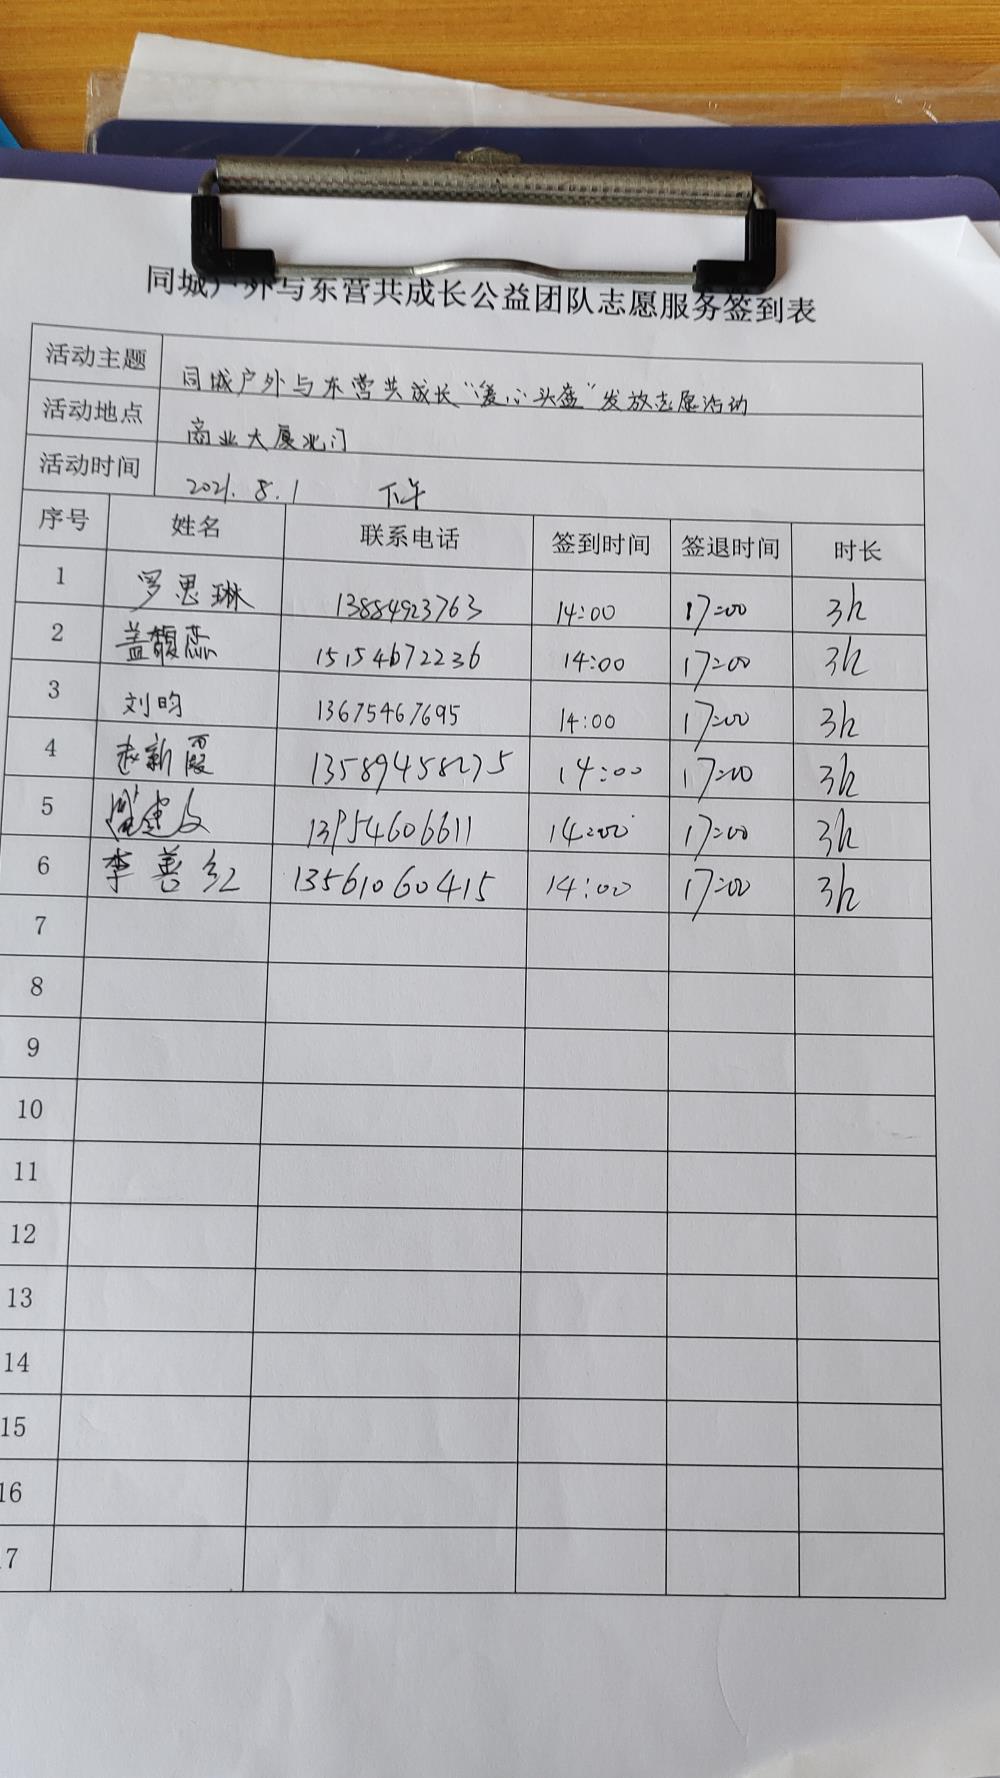 同城户外与东营共成长公益团队志愿服务签到表
活动主题 同城户外与东营共成长“爱心头盔”发放志愿活动
活动地点 商业大厦北门
活动时间 2021.8.1 下午
序号 姓名 联系电话 签到时间 签退时间 时长
1 罗思琳 13884923763 14:00 17:00 3h
2 盖馥 15154672236 14:00 17:00 3h
3 刘昀 13675467695 14:00 17:00 3h
4 赵新霞 13589458275 14:00 17:00 3h
5 建文 13954606611 14:00 17:00 3h
6 李善红 13561060415 14:00 17:00 3h
7
8
9
10
11
12
13
14
15
16
17